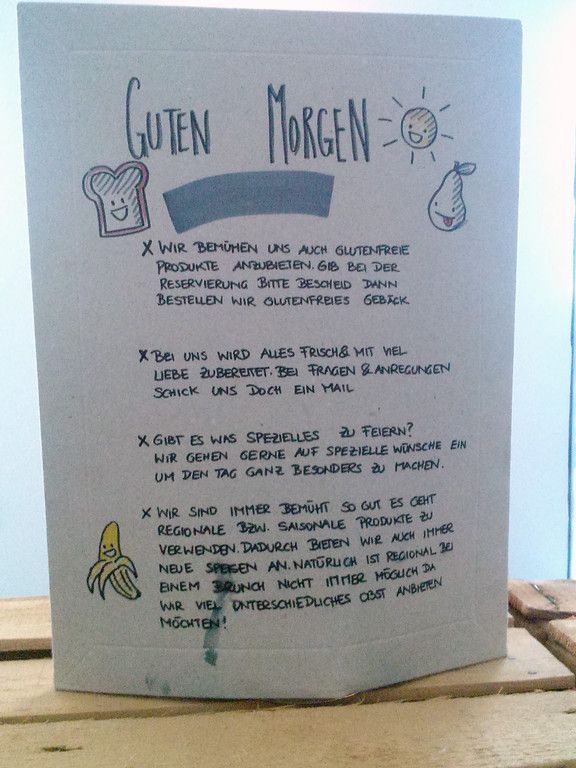 GUTEN MORGEN
X WIR BEMÜHEN UNS AUCH GLUTENFREIE
PRODUKTE ANZUBIETEN. GIB BEI DER
RESERVIERUNG BITTE BESCHEID DANN
BESTELLEN WIR GLUTENFREIES GEBÄCK
X BEI UNS WIRD ALLES FRISCH & MIT VIEL
LIEBE ZUBEREITET. BEI FRAGEN & ANREGUNGEN
SCHICK UNS DOCH EIN MAIL
X GIBT ES WAS SPEZIELLES ZU FEIERN?
WIR GEHEN GERNE AUF SPEZIELLE WÜNSCHE EIN
UM DEN TAG GANZ BESONDERS ZU MACHEN.
X WIR SIND IMMER BEMÜHT SO GUT ES GEHT
REGIONALE BZW. SAISONALE PRODUKTE ZU
VERWENDEN. DADURCH BIETEN WIR AUCH IMMER
NEUE SPEISEN AN. NATÜRLICH IST REGIONAL BEI
EINEM BRUNCH NICHT IMMER MÖGLICH DA
WIR VIEL UNTERSCHIEDLICHES OBST ANBIETEN
MÖCHTEN!